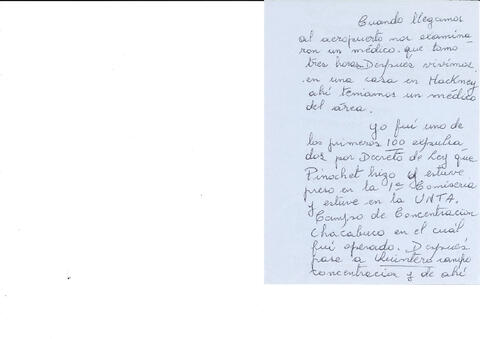 Cuando llegamos
al aeropuerto nos examina
ron un médico. que tomo
tres horas. Después vivimos
en una casa en Hackney
ahí teniamos un médico
del área.
yo fuí uno de
los primeros 100 expulsa
dos por Decreto de Ley que
Pinochet hizo y estuve
preso en la 1ª Comiseria
y estuve en la UNTA.
Campo de Concentracion
Chacabuco en el cuál
fuí operado. Después
pase a Quintero campo
concentracion y de ahí